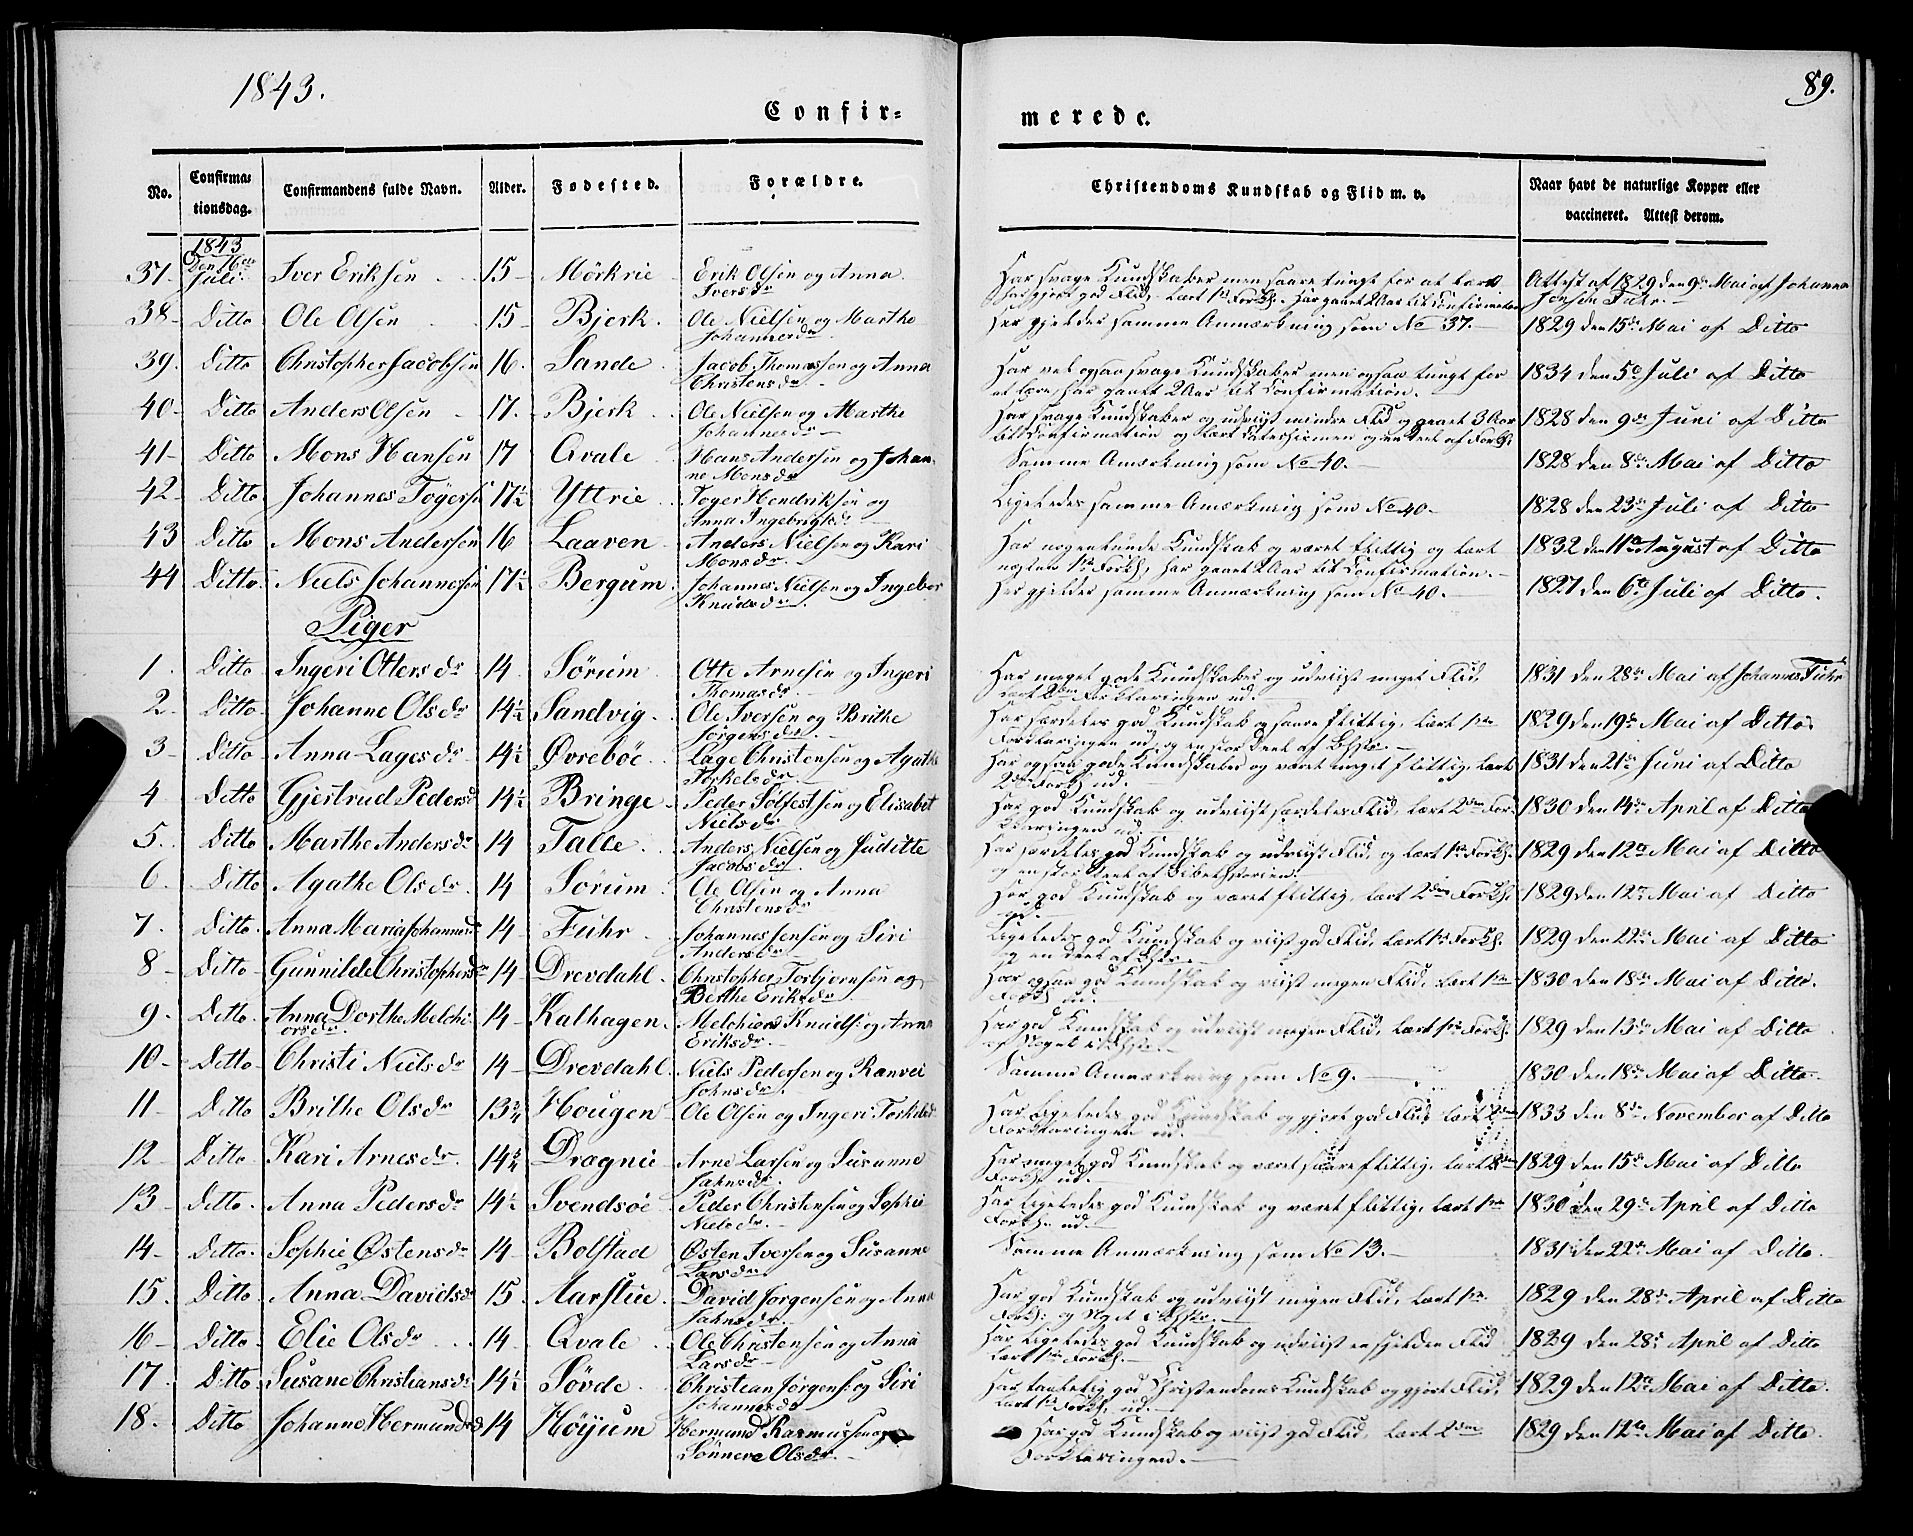 1843.
89.
Confir= merede.
No. Confirmationsdag. Confirmandens fulde Navn. Alder. Fødested. Forældre. Christendoms Kundskab og Flid m. v. Naar havt de naturlige Kopper eller vaccineret. Attest derom.
1843
37. Den 16de Juli Iver Eriksen 15 Mörkrie Erik Olsen og Anna Iversdr Har svage Kundskaber men saare tungt for at lære har gjort god Flid, lært 1ste Forkl. Har gaaet 2 Aar til Confirmation Attest af 1829 den 9de Mai af Johannes Jensen Fuhr.
38 Ditto Ole Olsen 15 Bjerk Ole Nielsen og Marthe Johannesdr Her gjeldes samme Anmærkning som No 37. 1829 den 15de Mai af Ditto
39. Ditto Christopher Jacobsen 16. Sande Jacob Thomassen og Anna Christensdr Har vel ogsaa svage Kundskaber men ogsaa tungt for at lære har gaaet 2 Aar til Confirmation. 1834 den 5te Juli af Ditto
40 Ditto Anders Olsen 17. Bjerk Ole Nielsen og Marthe Johannesdr Har svage Kundskaber og udviist mindre Flid og gaaet 3 Aar til Confirmation og lært Catechismen og en Deel af Forkl. 1828 den 9de Juni af Ditto
41 Ditto Mons Hansen 17 Qvale Hans Andersen og Johanne Monsdr Samme Anmærkning som No 40. 1828 den 8de Mai af Ditto
42 Ditto Johannes Töger 17½ Yttrie Töger Hendriksen og Anna Ingebrigtsdr Ligeledes samme Anmærkning som No 40. 1828 den 23de Juli af Ditto
43 Ditto Mons Andersen 16 Laaven Anders Nielsen og Kari Monsdr Har nogenlunde Kundskab og været flittig og lært 1ste Forkl, har gaaet 2 Aar til Confirmation. 1832 den 11te August af Ditto
44 Ditto Niels Johannesen 17½ Bergum Johannes Nielsen og Ingebor Knudsdr Her gjelder samme Anmærkning som No 40. 1827 den 6te Juli af Ditto.
Piger
1. Ditto Ingeri Ottersdr 14 Sörum Otte Arnesen og Ingeri Thomasdr Har meget gode Kundskaber og udviist meget Flid lært 2den Forklaringen ud. 1831 den 28de Mai af Johannes Fuhr
2 Ditto Johanne Olsdr 14½ Sandvig Ole Iversen og Brithe Jörgensdr Har særdeles god Kundskab og saare flittig, lært 1ste Forklaringen ud og en stor Deel af Bhst. 1829 den 19de Mai af Ditto
3 Ditto Anna Lagesdr 14½ Övreböe Lage Christensen og Agathe Torkelsdr Har ogsaa gode Kundskaber og været meget flittig, lært 2den Forkl ud. 1831 den 21de Juni af Ditto
4 Ditto Gjertrud Pedersd 14½ Bringe Peder Solfestsen og Elisabet Nielsdr Har god Kundskab og udviist særdeles Flid, lært 2den Forklaringen ud. 1830 den 14de April af Ditto
5. Ditto Marthe Andersdr 14 Talle Anders Nielsen og Juditte Jacobsdr Har særdeles god Kundskab og udviist Flid, og lært 1ste Forkl. og en stor Deel af Bibelhistorien. 1829 den 12te Mai af Ditto
6 Ditto Agathe Olsdr 14 Sorum Ole Olsen og Anna Christensdr Har god Kundskab og været flittig, lært 2den Forkl. ud. 1829 den 12te Mai af Ditto
7. Ditto Anna Maria Johannesd 14 Fuhr Johannes Jensen og Siri Andersdr Ligeledes god Kundskab og viist god Flid, lært 1ste Forkl. og en Deel af Bhst. 1829 den 22de Mai af Ditto
8 Ditto Gunnilde Christophersdr 14 Drevdahl Christopher Torbjornsen og Berthe Eriksdr Har ogsaa god Kundskab og viist megen Flid, lært 1ste Forkl ud. 1830 den 18de Mai af Ditto.
9. Ditto Anna Dorthe Melchiorsdr 14 Kalhagen Melchiord Knuds og Anna Eriksdr Har god Kundskab og udviist megen Flid, lært 1ste Forkl. og Noget i Bhst. 1829 den 13de Mai af Ditto
10 Ditto Christi Nielsdr 14 Drevdahl Niels Pedersen og Ranvei Johnsdr Samme Anmærkning som No 9. 1830 den 18de Mai af Ditto.
11 Ditto Brithe Olsdr 13¾ Hougen Ole Olsen og Ingeri Torkilsd Har ligeledes god Kundskab og gjort god Flid, lært 2den Forklaringen ud. 1833 den 8de November af Ditto
12 Ditto Kari Arnesdr 14¾ Dragnie Arne Larsen og Susanne Jahnsdr Har meget god Kundskab og været saare flittig, lært 2den Forkl ud. 1829 den 15de Mai af Ditto
13 Ditto Anna Pedersdr 14½ Svendsöe Peder Christensen og Sophie Nielsdr Har ligeledes god Kundskab og været flittig, lært 1ste Forkl. ud. 1830 den 29de April af Ditto
14 Ditto Sophie Östensdr 14 Bolstad Östen Iversen og Susanne Larsdr Samme Anmærkning som No 13. 1831 den 22de Mai af Ditto.
15. Ditto Anna Davidsd 15. Aarstue David Jorgensen og Anna Jahnsdr Har god Kundskab og udviist megen Flid, lært 1ste Forkl: og Noget i Bhst. 1829 den 28de April af Ditto
16 Ditto Elie Olsdr 14 Qvale Ole Christensen og Anna Larsdr Har ligeledes god Kundskab og udviist en sjelden Flid lært 1ste Forkl. 1829 den 28de April af Ditto
17 Ditto Susane Christiansd 14½ Sövde Christian Jörgens: og Siri Johannesdr Har tarvelig god Christendoms Kundskab og gjort Flid, lært 1ste Forkl. ud. 1829 den 12te Mai af Ditto.
18. Ditto Johanne Hermundsd 14 Höyum Hermund Rasmussen og Sönneva Olsdr Har god Kundskab og viist god Flid, lært 2den Forklaringen. 1829 den 12te Mai af Ditto.